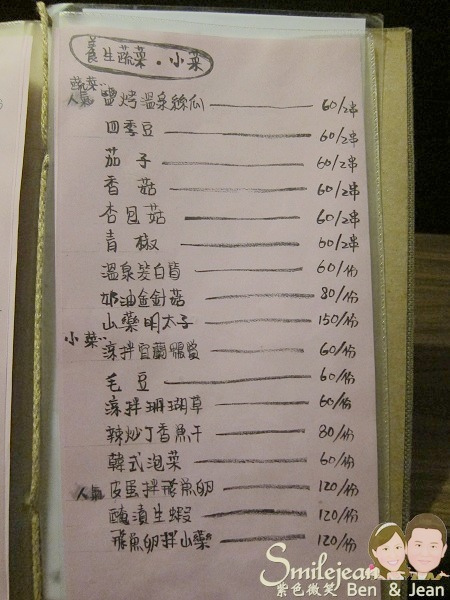 養生蔬菜．小菜
蔬菜 人氣 鹽烤溫泉絲瓜 60/2串
四季豆 60/2串
茄子 60/2串
香菇 60/2串
杏鮑菇 60/2串
青椒 60/2串
溫泉茭白筍 60/份
奶油金針菇 80/份
山藥明太子 150/份
小菜 涼拌宜蘭鴨賞 60/份
毛豆 60/份
涼拌珊瑚草 60/份
辣炒丁香魚干 80/份
韓式泡菜 60/份
人氣 皮蛋拌飛魚卵 120/份
醃漬生蝦 120/份
飛魚卵拌山藥 120/份
Smilejean
紫色微笑 Ben & Jean